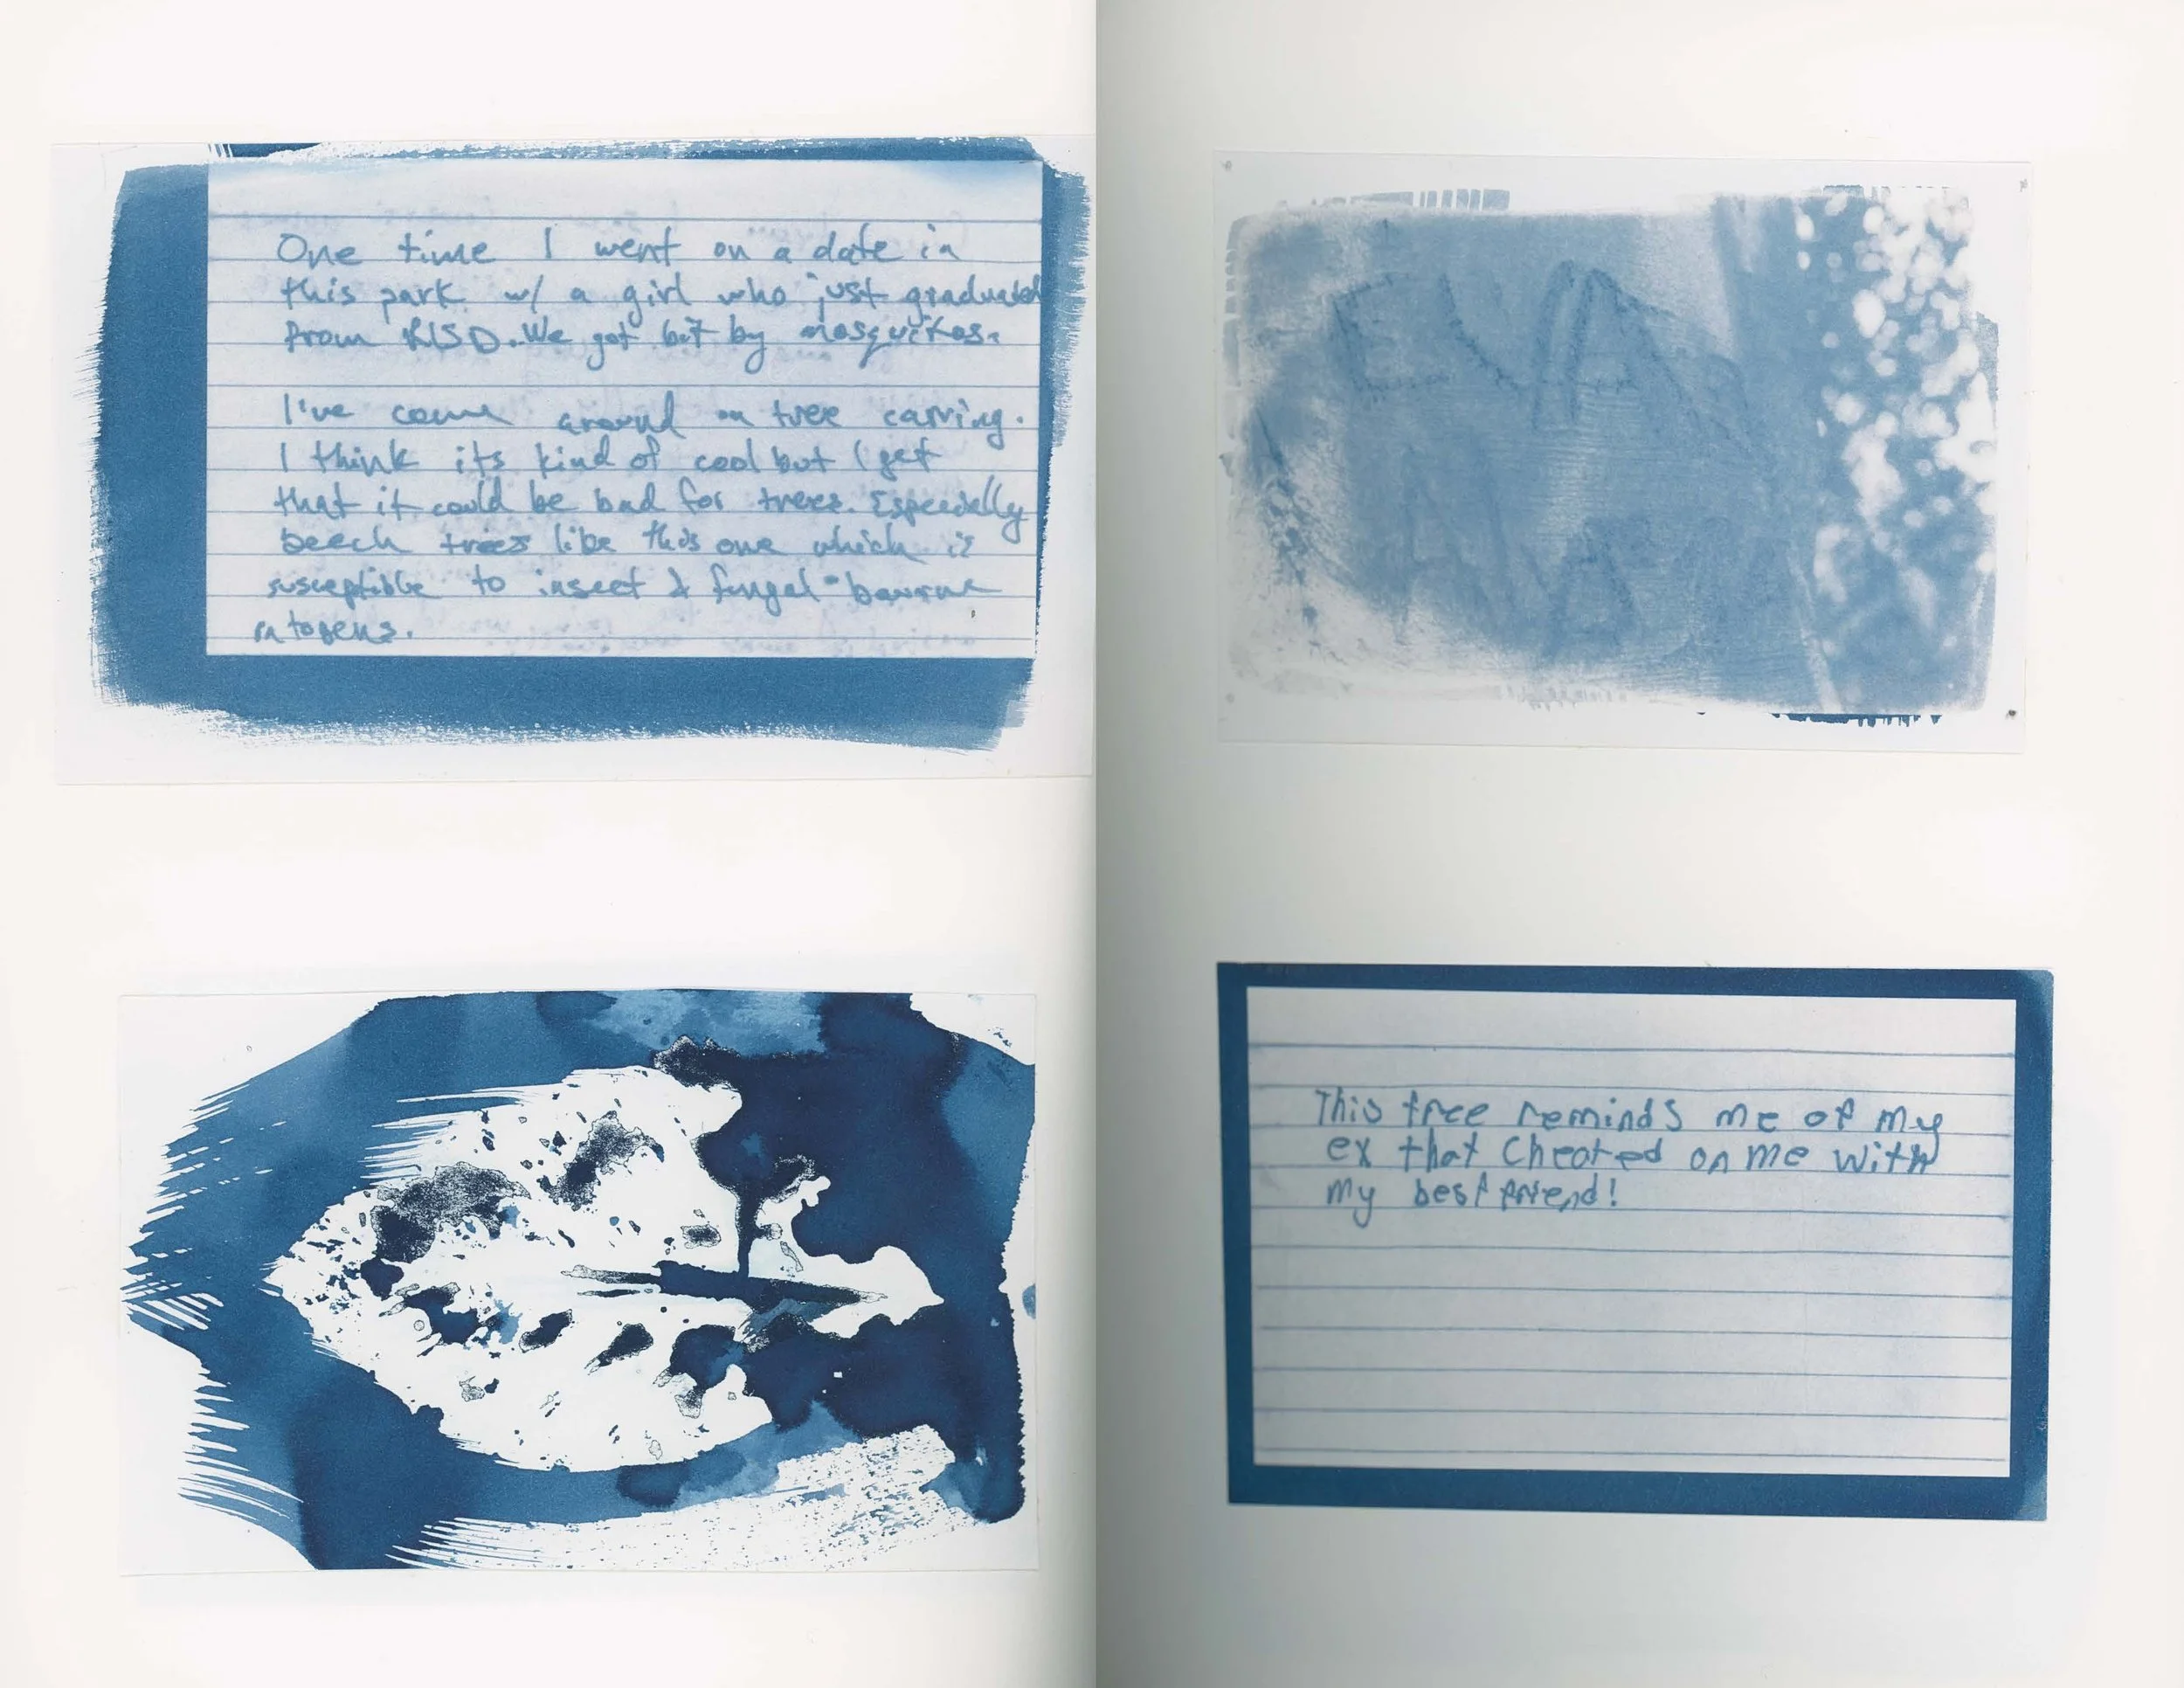 One time I went on a date in
this park w/ a girl who just graduated
from RISD. We got bit by mosquitos.
I've come around on tree carving.
I think its kind of cool but I get
that it could be bad for trees. Especially
beech trees like this one which is
susceptible to insect & fungal-bourne
EVA
This tree reminds me of my
ex that cheated on me with
my best friend!